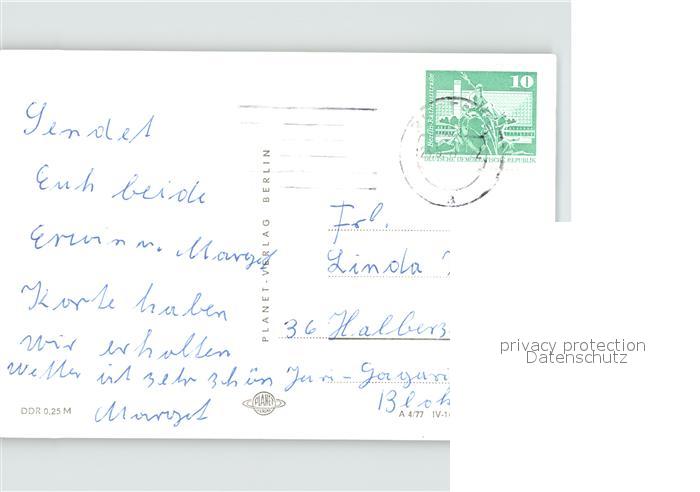 10
Berlin, Rathausstraße
DEUTSCHE DEMOKRATISCHE REPUBLIK
Sendet
Euch beide
Erwin u. Margot
Karte haben
wir erhalten
Wetter ist sehr schön
Margot
PLANET-VERLAG BERLIN
Frl.
Linda
36 Halbers
Juri-Gagari
Blok
DDR 0,25 M
PLANET
A 4/77 IV-1
privacy protection
Datenschutz